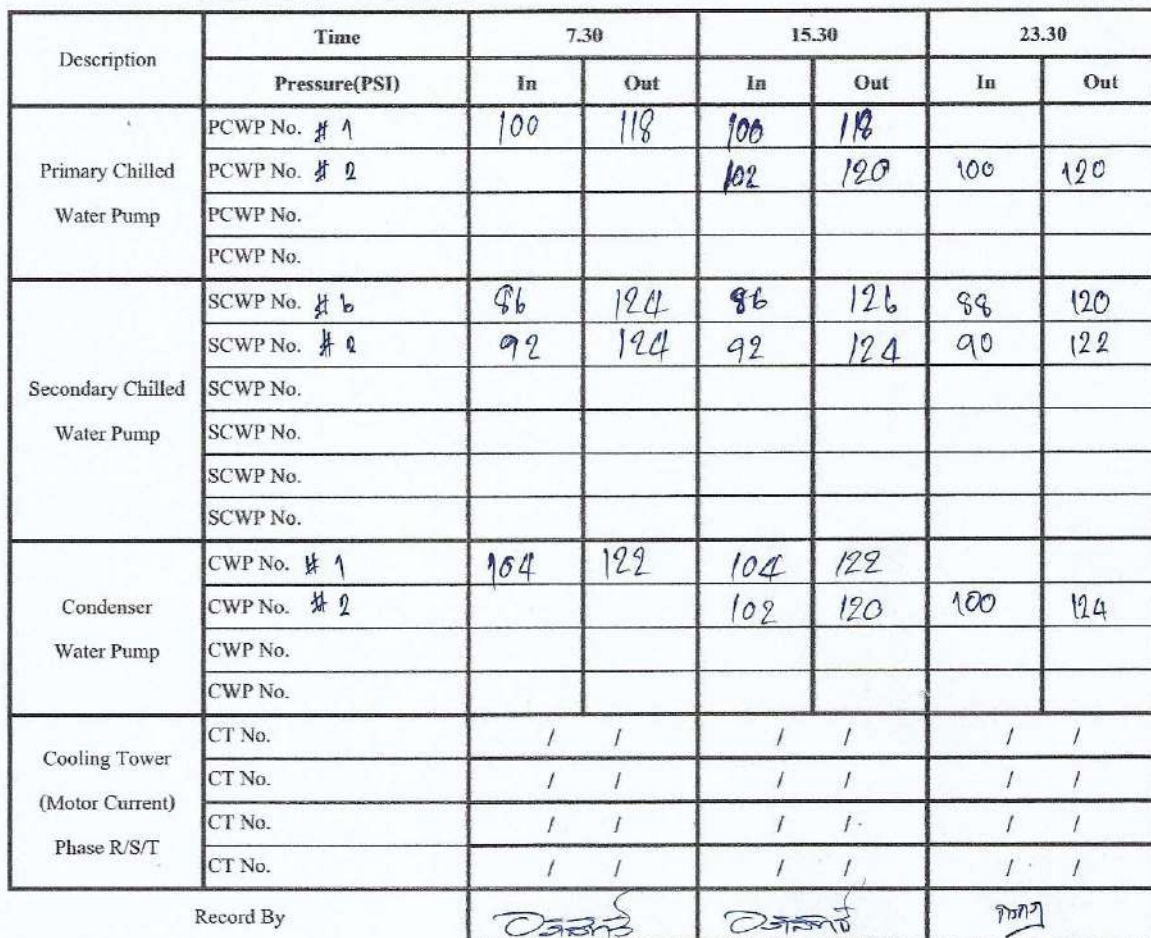 Description Time 7.30 15.30 23.30
Pressure(PSI) In Out In Out In Out
Primary Chilled Water Pump
PCWP No. # 1 100 118 100 118
PCWP No. # 2 102 120 100 120
PCWP No.
PCWP No.
Secondary Chilled Water Pump
SCWP No. # 6 86 124 86 126 88 120
SCWP No. # 2 92 124 92 124 90 122
SCWP No.
SCWP No.
SCWP No.
SCWP No.
Condenser Water Pump
CWP No. # 1 104 122 104 122
CWP No. # 2 102 120 100 124
CWP No.
CWP No.
Cooling Tower (Motor Current) Phase R/S/T
CT No. / / / / / /
CT No. / / / / / /
CT No. / / / / / /
CT No. / / / / / /
Record By